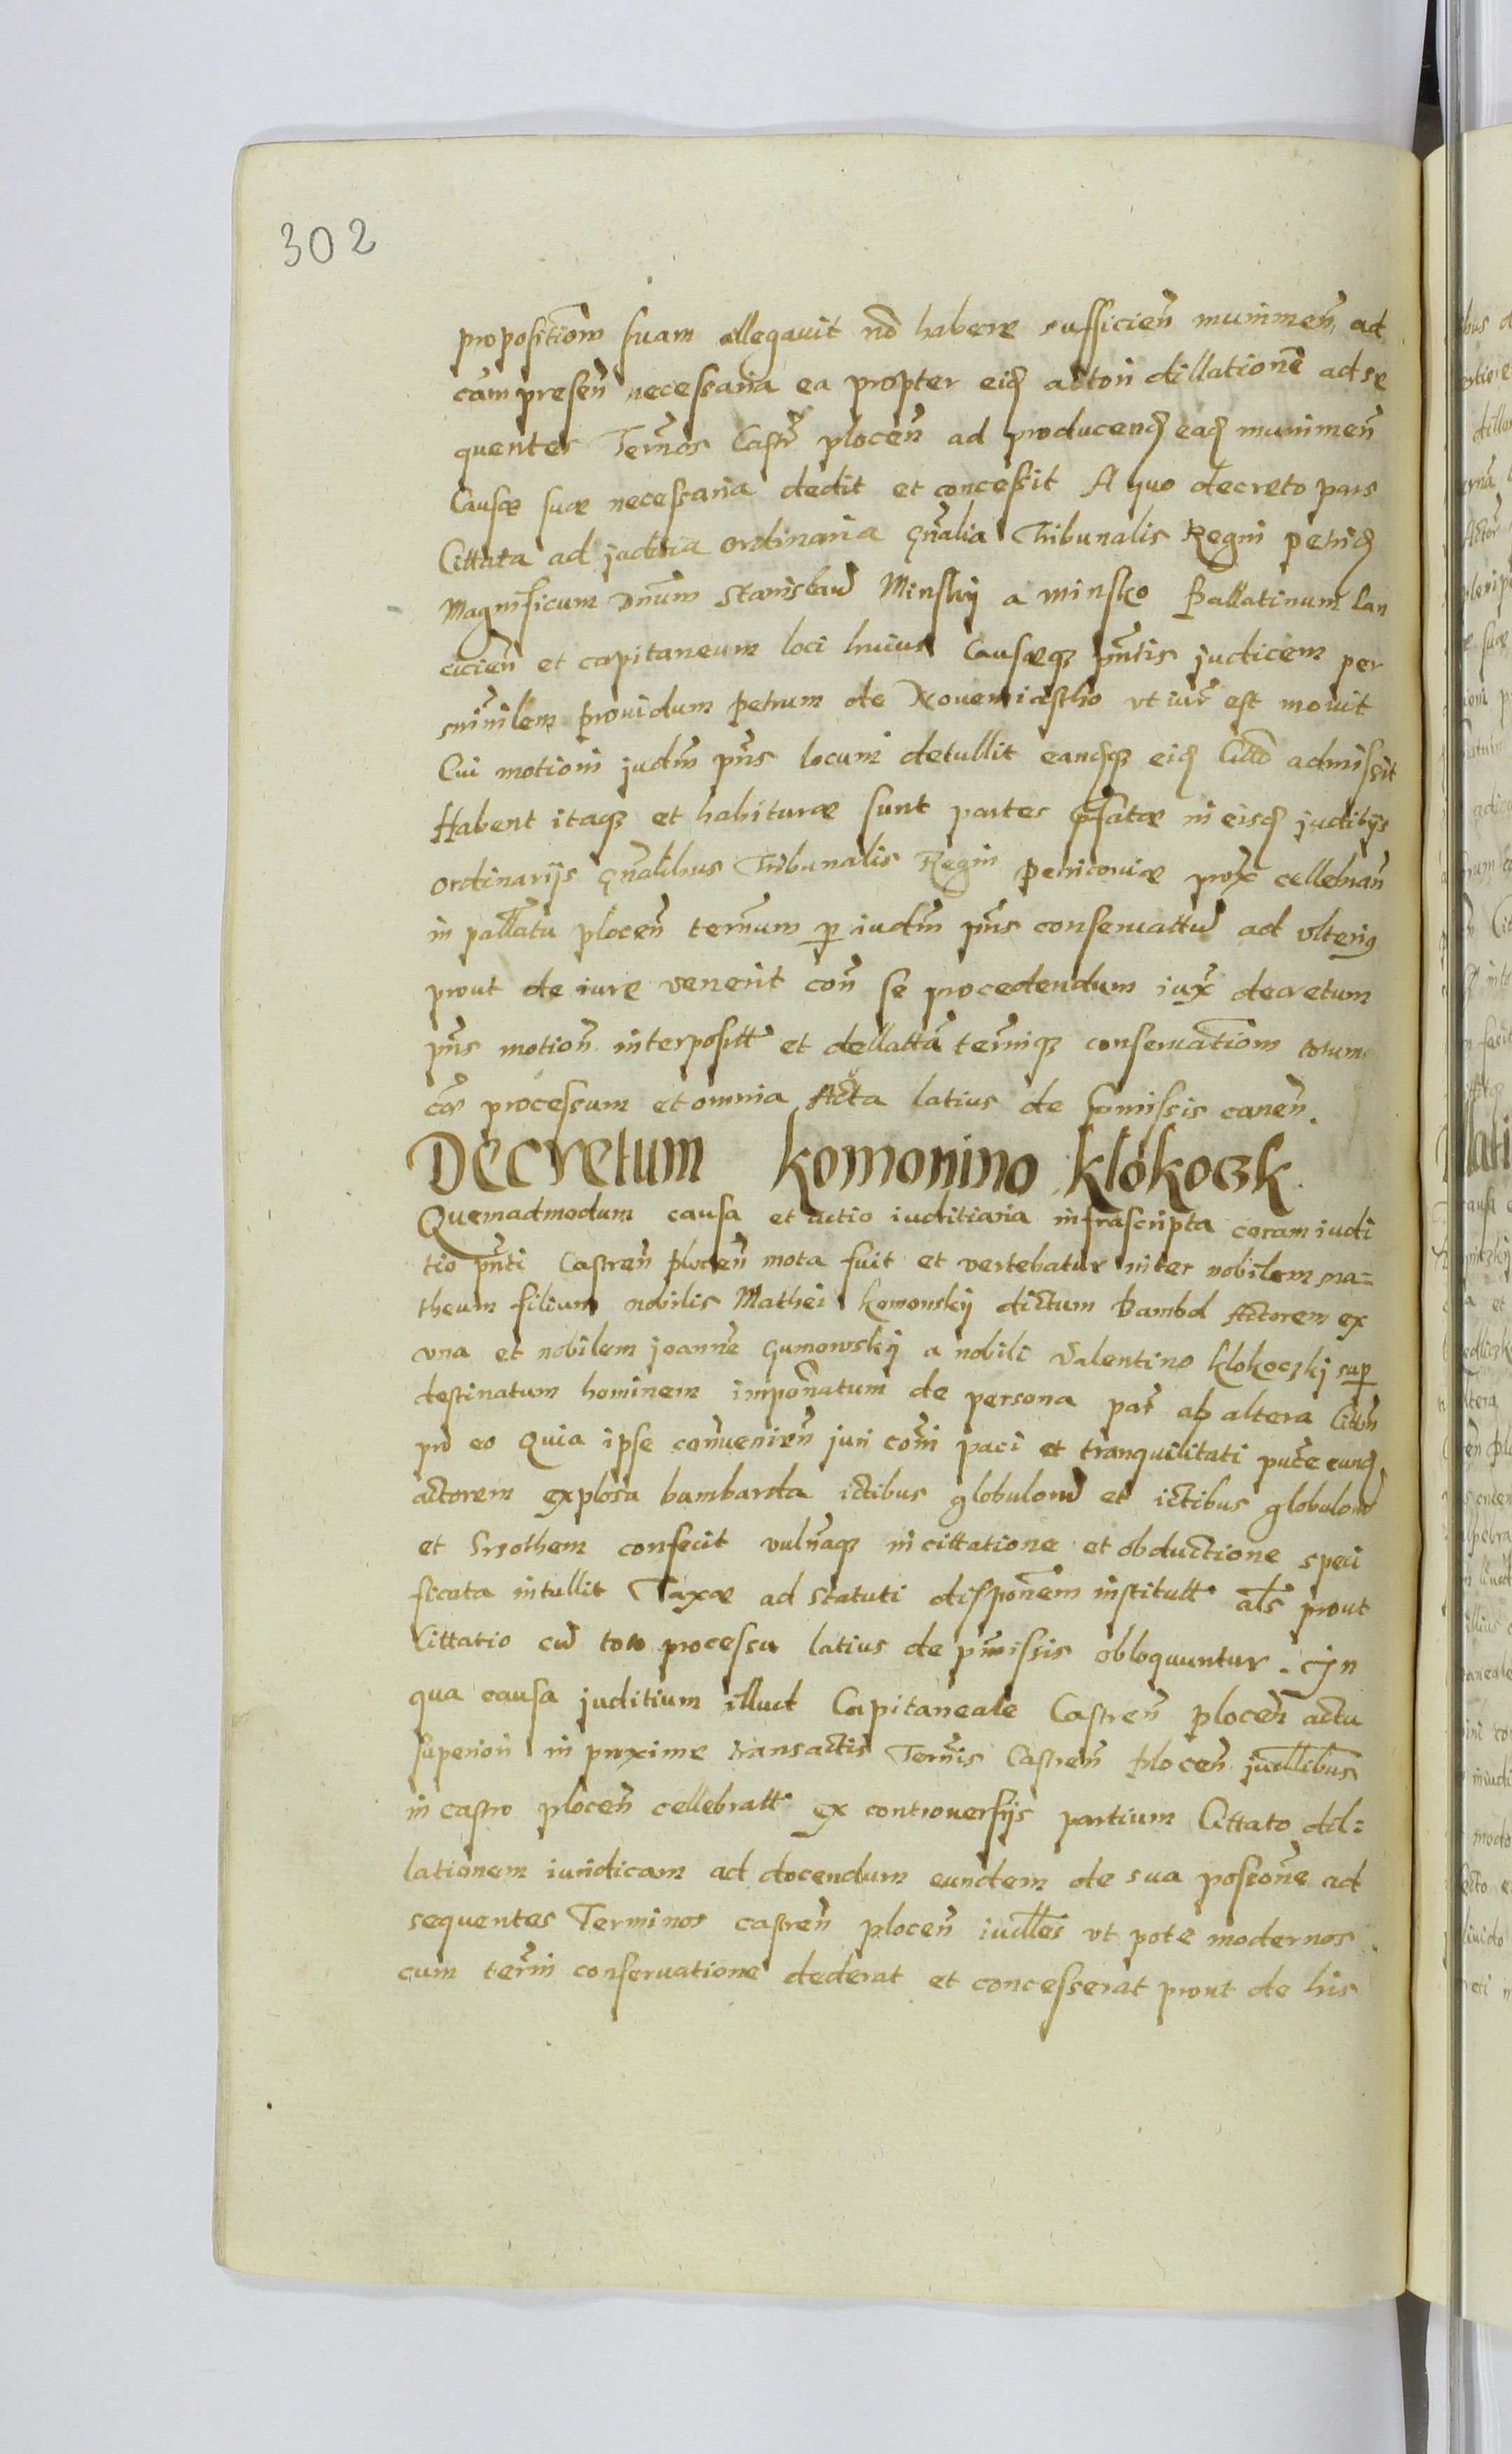 302
propositiom suam allegavit no habere sufficien munimen ad
cam presen necessaria ea propter eid actori dillatione ad se
quentes Ternos Castr plocen ad producend ead munimen
Causæ suæ necessaria dedit et concessit A quo decreto pars
Cittata ad juditia ordinaria gnalia Tribunalis Regni petrico
Magnificum Dnum Stanislau Minskij a minsko Pallatinum Lan
cicien et capitaneum loci huius Causæq pntis judicem per
minilem providum petrum de Novemiastho ut iur est movit
Cui motioni judm pns locum detullit eandq eid Citto admissit
Habent itaq et habituræ sunt partes pfatæ in eisd juditijs
ordinarijs gnalibus Tribunalis Regni petricoviæ prox cellebran
in pallatu plocen ternum p iudm pns conservattu ad ulterig
prout de iure venerit con se procedendum iux decretum
pns motion interpositt et dellatta terniq conservatiom totum
cæ processum et omnia Acta latius de pmissis canen.
Decretum Komonino klokoczk
Quemadmodum causa et actio iuditiaria infrascripta coram iudi
tio pnti Castren plocen mota fuit et vertebatur inter nobilem ma=
theum filium nobilis Mathei komonskij dictum Bambol Actorem ex
una et nobilem joanne gumowskij a nobili Valentino klokoczkj sup
destinatum hominem imponatum de persona par ab altera Citten
pro eo Quia ipse convenien juri comi paci et tranquilitati pute eund
actorem explosa bambarda ictibus globuloru et ictibus globuloru
et Srzothem confecit vulnaq in cittatione et obductione speci
ficata intullit Taxæ ad statuti disponem institutt als prout
Cittatio cu toto processu latius de pmissis obloquuntur. In
qua causa juditium illud Capitaneale Castren plocen actu
superiori in proxime transactis Ternis Castren plocen judllibus
in castro plocen cellebratt ex controversijs partium Cittato dil=
lationem iuridicam ad docendum eundem de sua possone ad
sequentes Terminos castren plocen iudlles ut pote modernos
cum termi conservatione dederat et concesserat prout de his